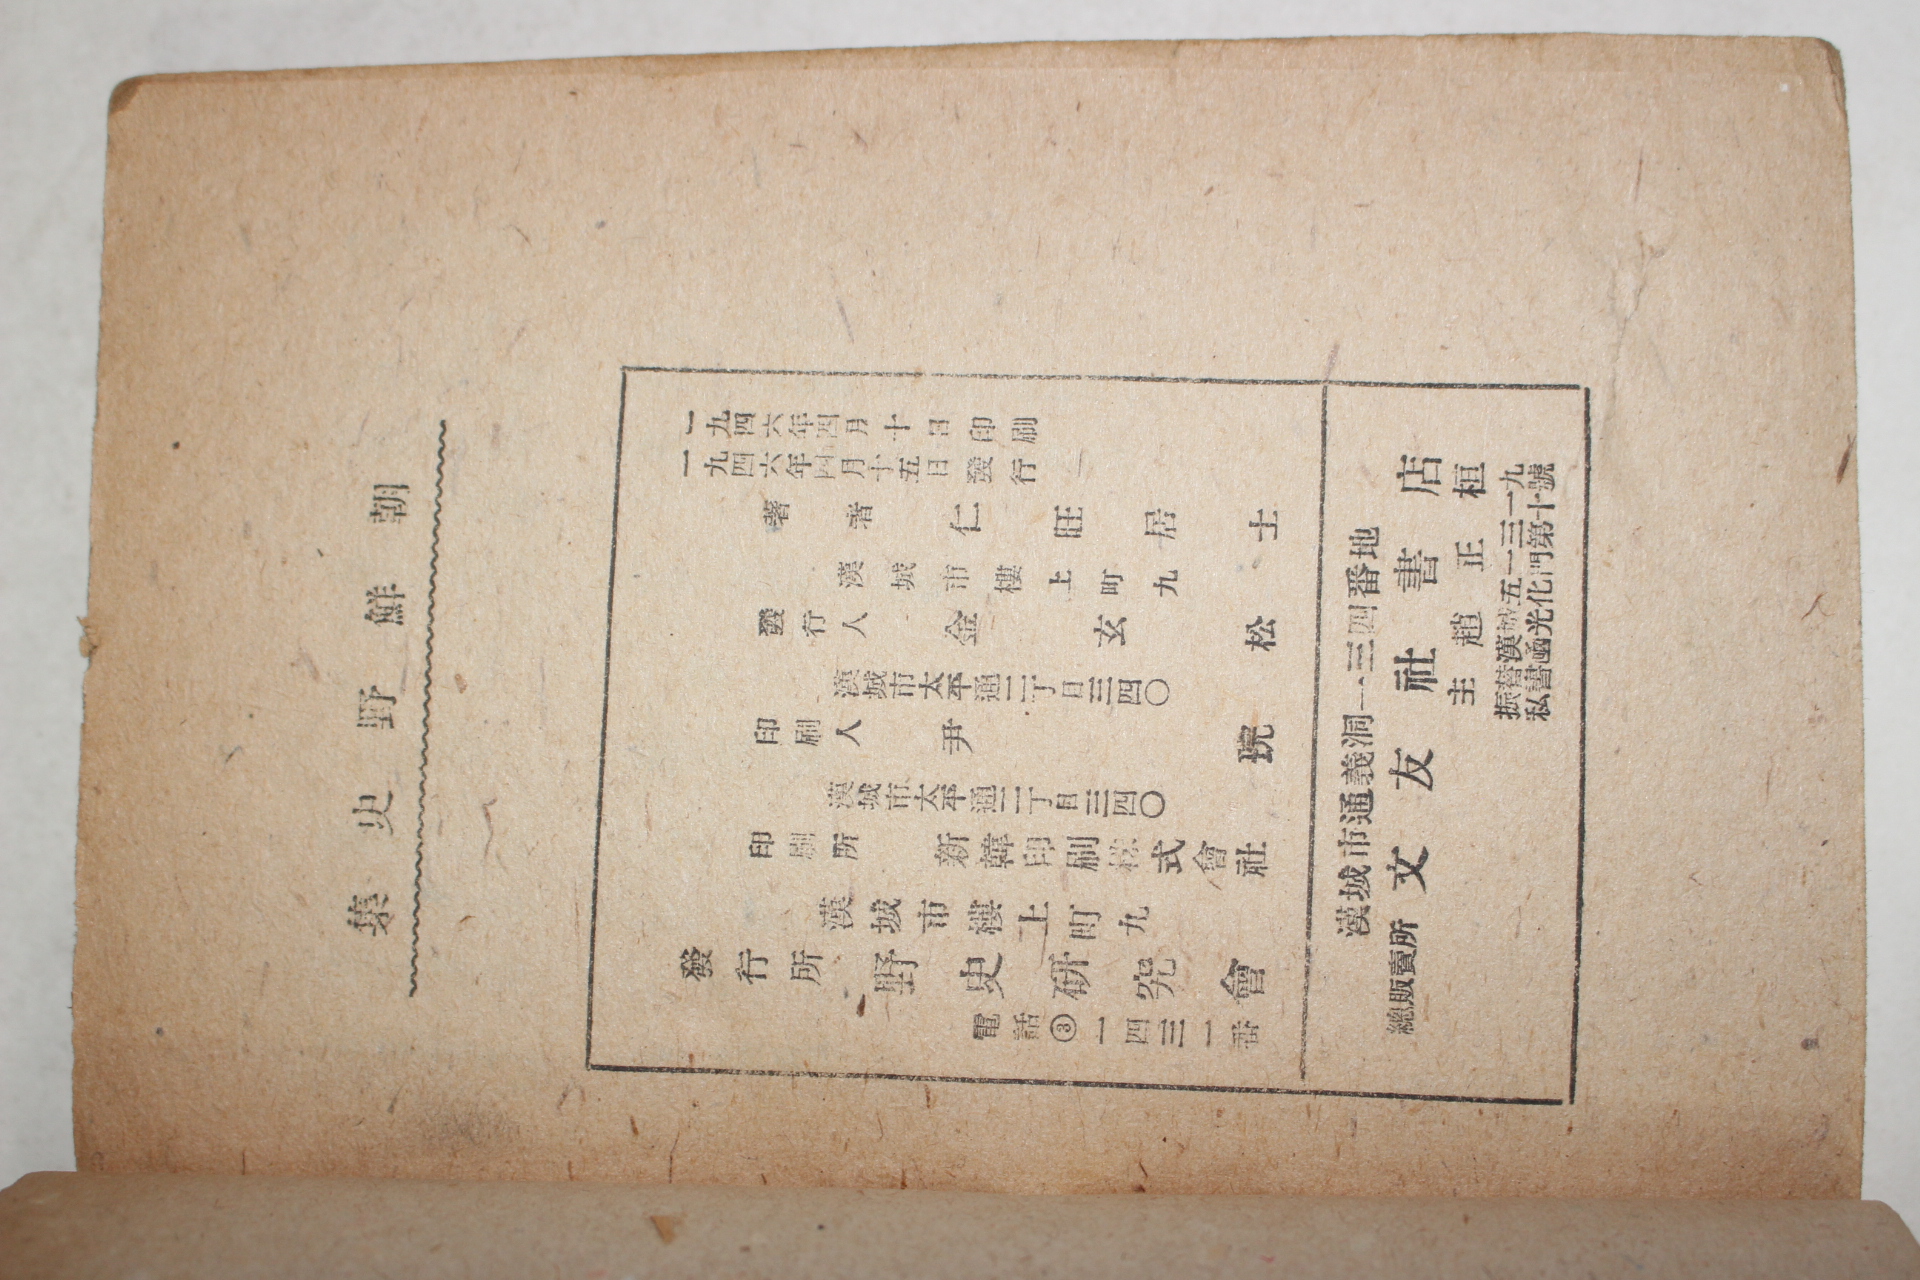 朝鮮野史集
一九四六年四月十日印刷
一九四六年四月十五日發行
著者 仁旺居士
漢城市樓上町九
發行人 金玄松
漢城市太平通二丁目三四〇
印刷人 尹琓
漢城市太平通二丁目三四〇
印刷所 新韓印刷株式會社
漢城市樓上町九
發行所 野史研究會
電話③一四三一番
漢城市通義洞一三四番地
總販賣所 文友社書店
主 趙正桓
振替漢城五一三一九
私書函光化門第十號